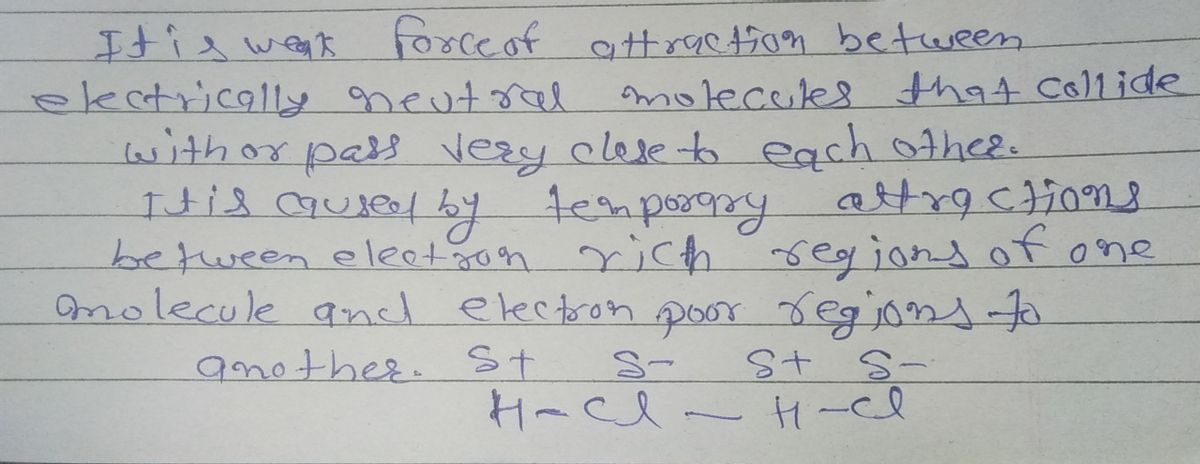 It is weak force of attraction between
electrically neutral molecules that collide
with or pass very close to each other.
It is caused by temporary attractions
between electron rich regions of one
molecule and electron poor regions to
another. S+ S- S+ S-
H-Cl - H-Cl